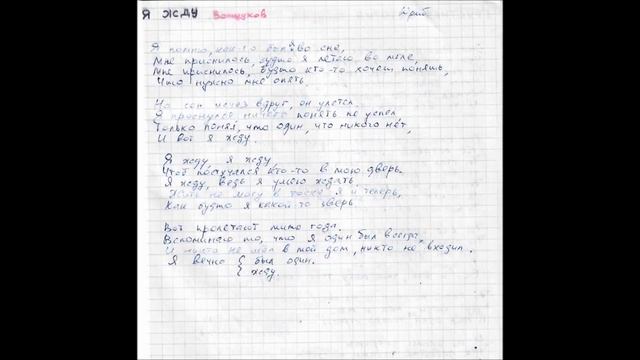 Я ЖДУ Ващуков
Я помню, как-то был я во сне,
Мне приснилось, будто я летаю во мгле,
Мне приснилось, будто кто-то хочет понять,
Что нужно мне опять.
Но сон исчез вдруг, он улетел.
Я проснулся, ничего понять не успел,
Только понял, что один, что никого нет,
И вот я жду.
Я жду, я жду,
Чтоб постучался кто-то в мою дверь.
Я жду, ведь я умею ждать.
Жить не могу в тоске я и теперь,
Как будто я какой-то зверь.
Вот пролетают мимо года.
Вспоминаю то, что я один был всегда
И никто не шёл в мой дом, никто не входил.
Я вечно { был один.
{ жду.